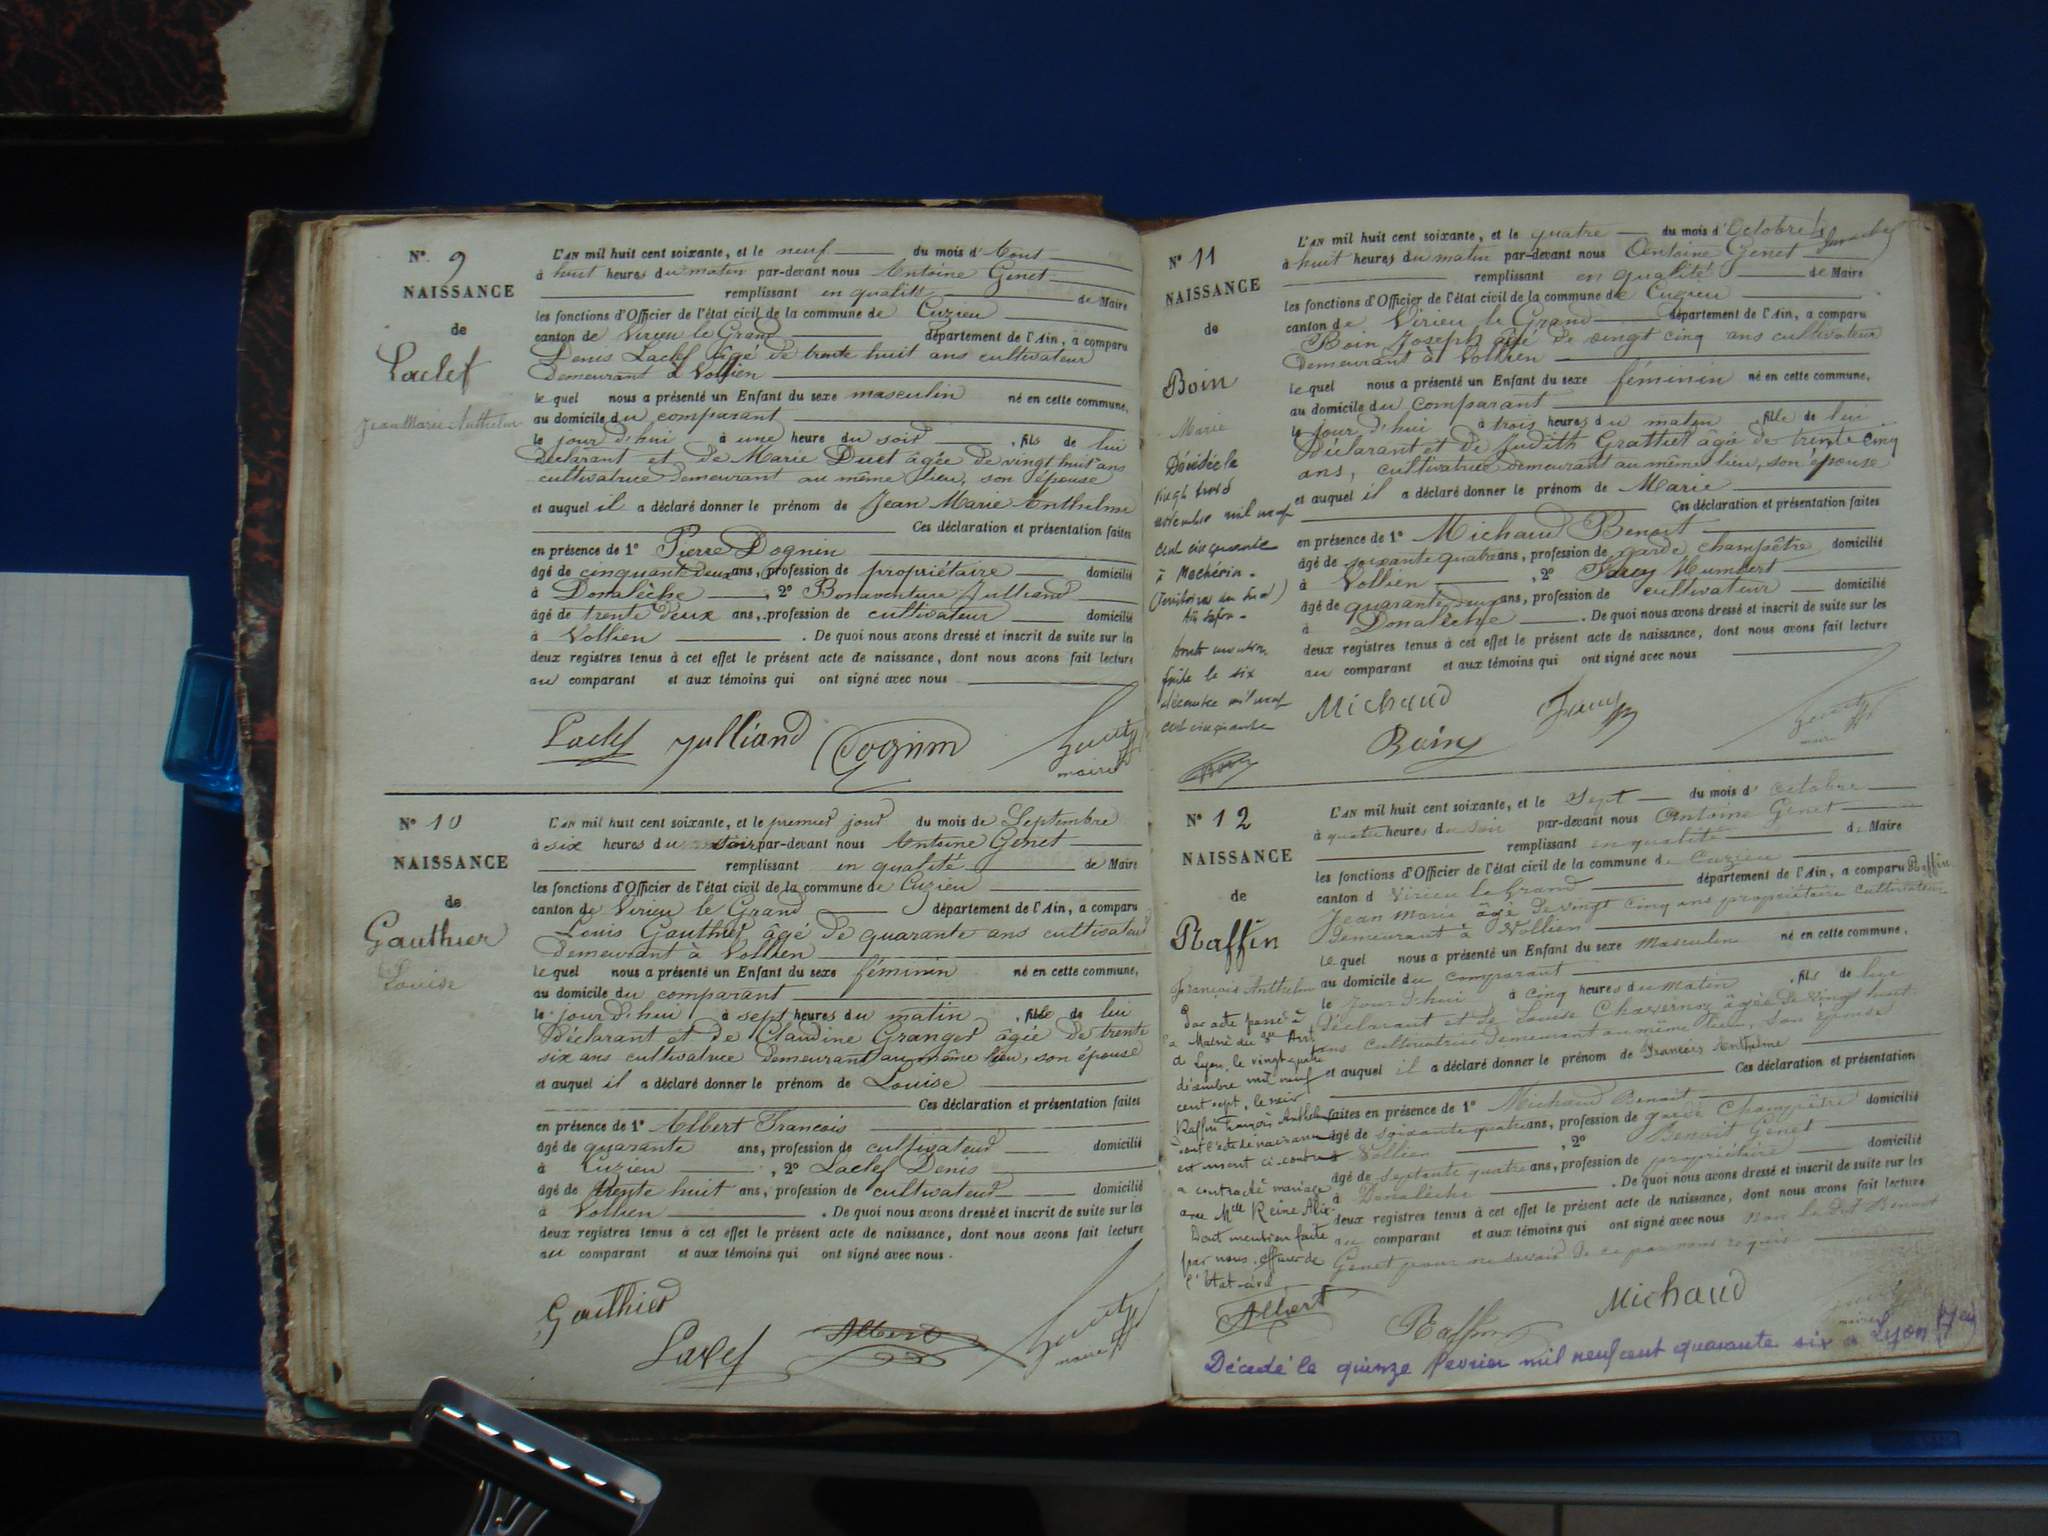 N° 9
NAISSANCE
de
Laclef
Jean Marie Anthelme
L'AN mil huit cent soixante, et le neuf du mois d'Aout
à huit heures du matin par-devant nous Antoine Genet
remplissant en qualité de Maire
les fonctions d'Officier de l'état civil de la commune de Cuzieu
canton de Virieu le Grand département de l'Ain, a comparu
Denis Laclef âgé de trente huit ans cultivateur
demeurant à Vollien
le quel nous a présenté un Enfant du sexe masculin né en cette commune,
au domicile du comparant
le jour d'hui à une heure du soir, fils de lui
déclarant et de Marie Duet âgée de vingt huit ans
cultivatrice demeurant au même lieu, son épouse
et auquel il a déclaré donner le prénom de Jean Marie Anthelme
Ces déclaration et présentation faites
en présence de 1° Pierre Dognin
âgé de cinquante deux ans, profession de propriétaire domicilié
à Donalèche, 2° Bonaventure Julliand
âgé de trente deux ans, profession de cultivateur domicilié
à Vollien. De quoi nous avons dressé et inscrit de suite sur la
deux registres tenus à cet effet le présent acte de naissance, dont nous avons fait lecture
au comparant et aux témoins qui ont signé avec nous
Laclef Julliand Dognin Genet
maire
N° 10
NAISSANCE
de
Gauthier
Louise
L'AN mil huit cent soixante, et le premier jour du mois de Septembre
à six heures du soir par-devant nous Antoine Genet
remplissant en qualité de Maire
les fonctions d'Officier de l'état civil de la commune de Cuzieu
canton de Virieu le Grand département de l'Ain, a comparu
Louis Gauthier âgé de quarante ans cultivateur
demeurant à Vollien
le quel nous a présenté un Enfant du sexe féminin né en cette commune,
au domicile du comparant
le jour d'hui à sept heures du matin, fille de lui
déclarant et de Claudine Granger âgée de trente
six ans cultivatrice demeurant au même lieu, son épouse
et auquel il a déclaré donner le prénom de Louise
Ces déclaration et présentation faites
en présence de 1° Albert François
âgé de quarante ans, profession de cultivateur domicilié
à Cuzieu, 2° Laclef Denis
âgé de trente huit ans, profession de cultivateur domicilié
à Vollien. De quoi nous avons dressé et inscrit de suite sur les
deux registres tenus à cet effet le présent acte de naissance, dont nous avons fait lecture
au comparant et aux témoins qui ont signé avec nous.
Gauthier
Laclef Albert Genet
maire
N° 11
NAISSANCE
de
Boin
Marie
Décédée le
vingt trois
novembre mil neuf
cent cinquante
à
(Territoire
dont mention
faite le six
décembre mil neuf
cent cinquante
L'AN mil huit cent soixante, et le quatre du mois d'Octobre
à huit heures du matin par-devant nous Antoine Genet
remplissant en qualité de Maire
les fonctions d'Officier de l'état civil de la commune de Cuzieu
canton de Virieu le Grand département de l'Ain, a comparu
Boin Joseph âgé de vingt cinq ans cultivateur
demeurant à Vollien
le quel nous a présenté un Enfant du sexe féminin né en cette commune,
au domicile du comparant
le jour d'hui à trois heures du matin, fille de lui
déclarant et de Judith Grattier âgée de trente cinq
ans, cultivatrice demeurant au même lieu, son épouse
et auquel il a déclaré donner le prénom de Marie
Ces déclaration et présentation faites
en présence de 1° Michaud Benoit
âgé de soixante quatre ans, profession de garde champêtre domicilié
à Vollien, 2° Humbert
âgé de quarante deux ans, profession de cultivateur domicilié
à Donalèche. De quoi nous avons dressé et inscrit de suite sur les
deux registres tenus à cet effet le présent acte de naissance, dont nous avons fait lecture
au comparant et aux témoins qui ont signé avec nous
Michaud
Boin Genet
maire
N° 12
NAISSANCE
de
Raffin
François Anthelme
Par acte passé à
la Mairie du Arrt
de Lyon, le vingt quatre
décembre mil neuf
cent sept, le sieur
Raffin François Anthelme
dont l'acte de naissance
est inscrit ci-contre
a contracté mariage
avec Mlle Reine Alix
Dont mention faite
par nous officier de
l'Etat-civil
Albert
L'AN mil huit cent soixante, et le Sept du mois d'Octobre
à quatre heures du soir par-devant nous Antoine Genet
remplissant en qualité de Maire
les fonctions d'Officier de l'état civil de la commune de Cuzieu
canton d Virieu le Grand département de l'Ain, a comparu Raffin
Jean Marie âgé de vingt cinq ans propriétaire cultivateur
demeurant à Vollien
le quel nous a présenté un Enfant du sexe Masculin né en cette commune,
au domicile du comparant
le jour d'hui à cinq heures du matin, fils de lui
déclarant et de Louise Chavernoz âgée de vingt huit
ans cultivatrice demeurant au même lieu, son épouse
et auquel il a déclaré donner le prénom de François Anthelme
Ces déclaration et présentation
faites en présence de 1° Michaud Benoit
âgé de soixante quatre ans, profession de garde champêtre domicilié
à Vollien, 2° Benoit Genet
âgé de septante quatre ans, profession de propriétaire domicilié
à Donalèche. De quoi nous avons dressé et inscrit de suite sur les
deux registres tenus à cet effet le présent acte de naissance, dont nous avons fait lecture
au comparant et aux témoins qui ont signé avec nous non le dit Benoit
Genet pour ne savoir de ce par nous requis
Raffin Michaud
maire
Décédé le quinze fevrier mil neuf cent quarante six à Lyon